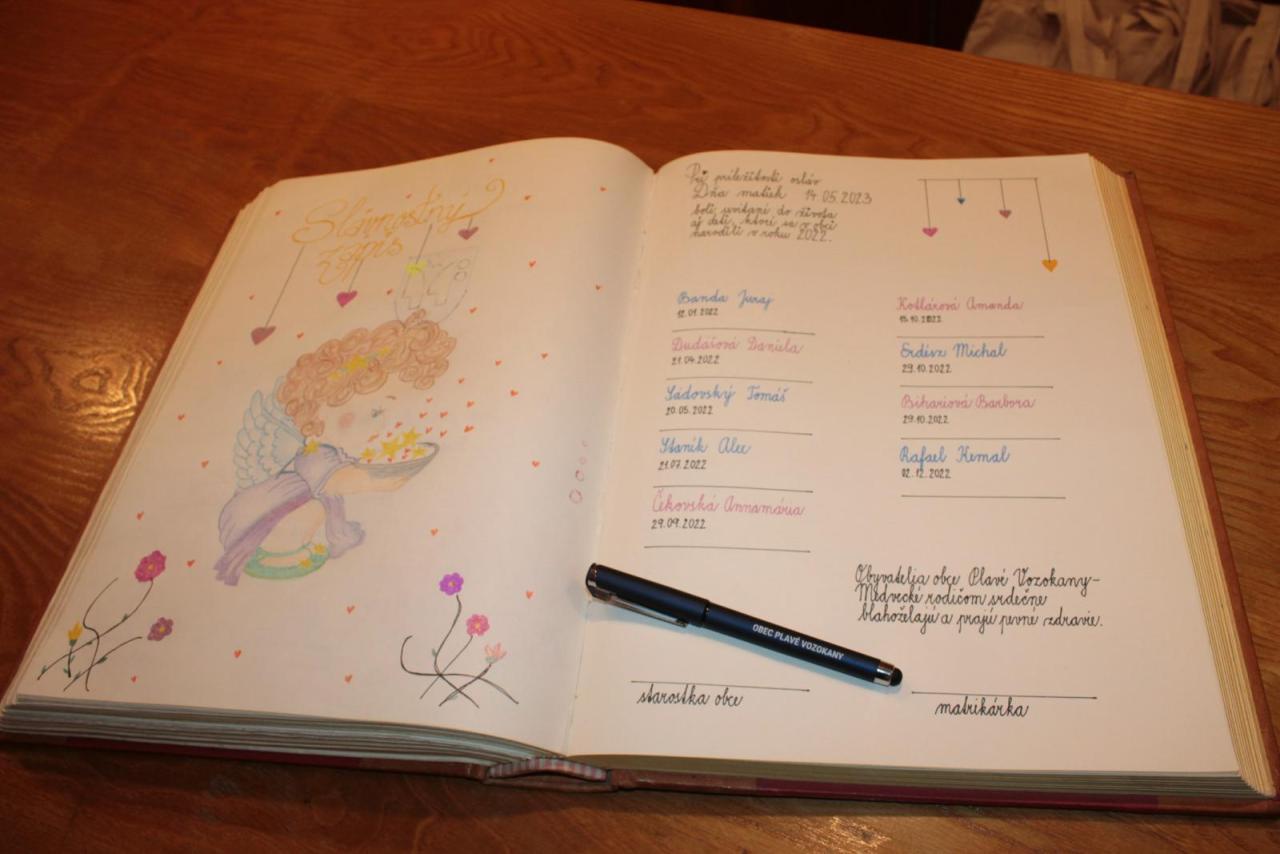 Slávnostný
zápis
Pri príležitosti osláv
Dňa matiek 14.05.2023
boli uvítané do života
aj deti, ktoré sa v obci
narodili v roku 2022.
Banda Juraj
12.01.2022
Dudašová Daniela
21.04.2022
Sádovský Tomáš
20.05.2022
Staník Alex
21.07.2022
Čekovská Annamária
29.09.2022
Kotlárová Amanda
15.10.2022
Erdész Michal
29.10.2022
Bihariová Barbora
29.10.2022
Rafael Kemal
02.12.2022
Obyvatelia obce Plavé Vozokany-
Medvecké rodičom srdečne
blahoželajú a prajú pevné zdravie.
OBEC PLAVÉ VOZOKANY
starostka obce
matrikárka